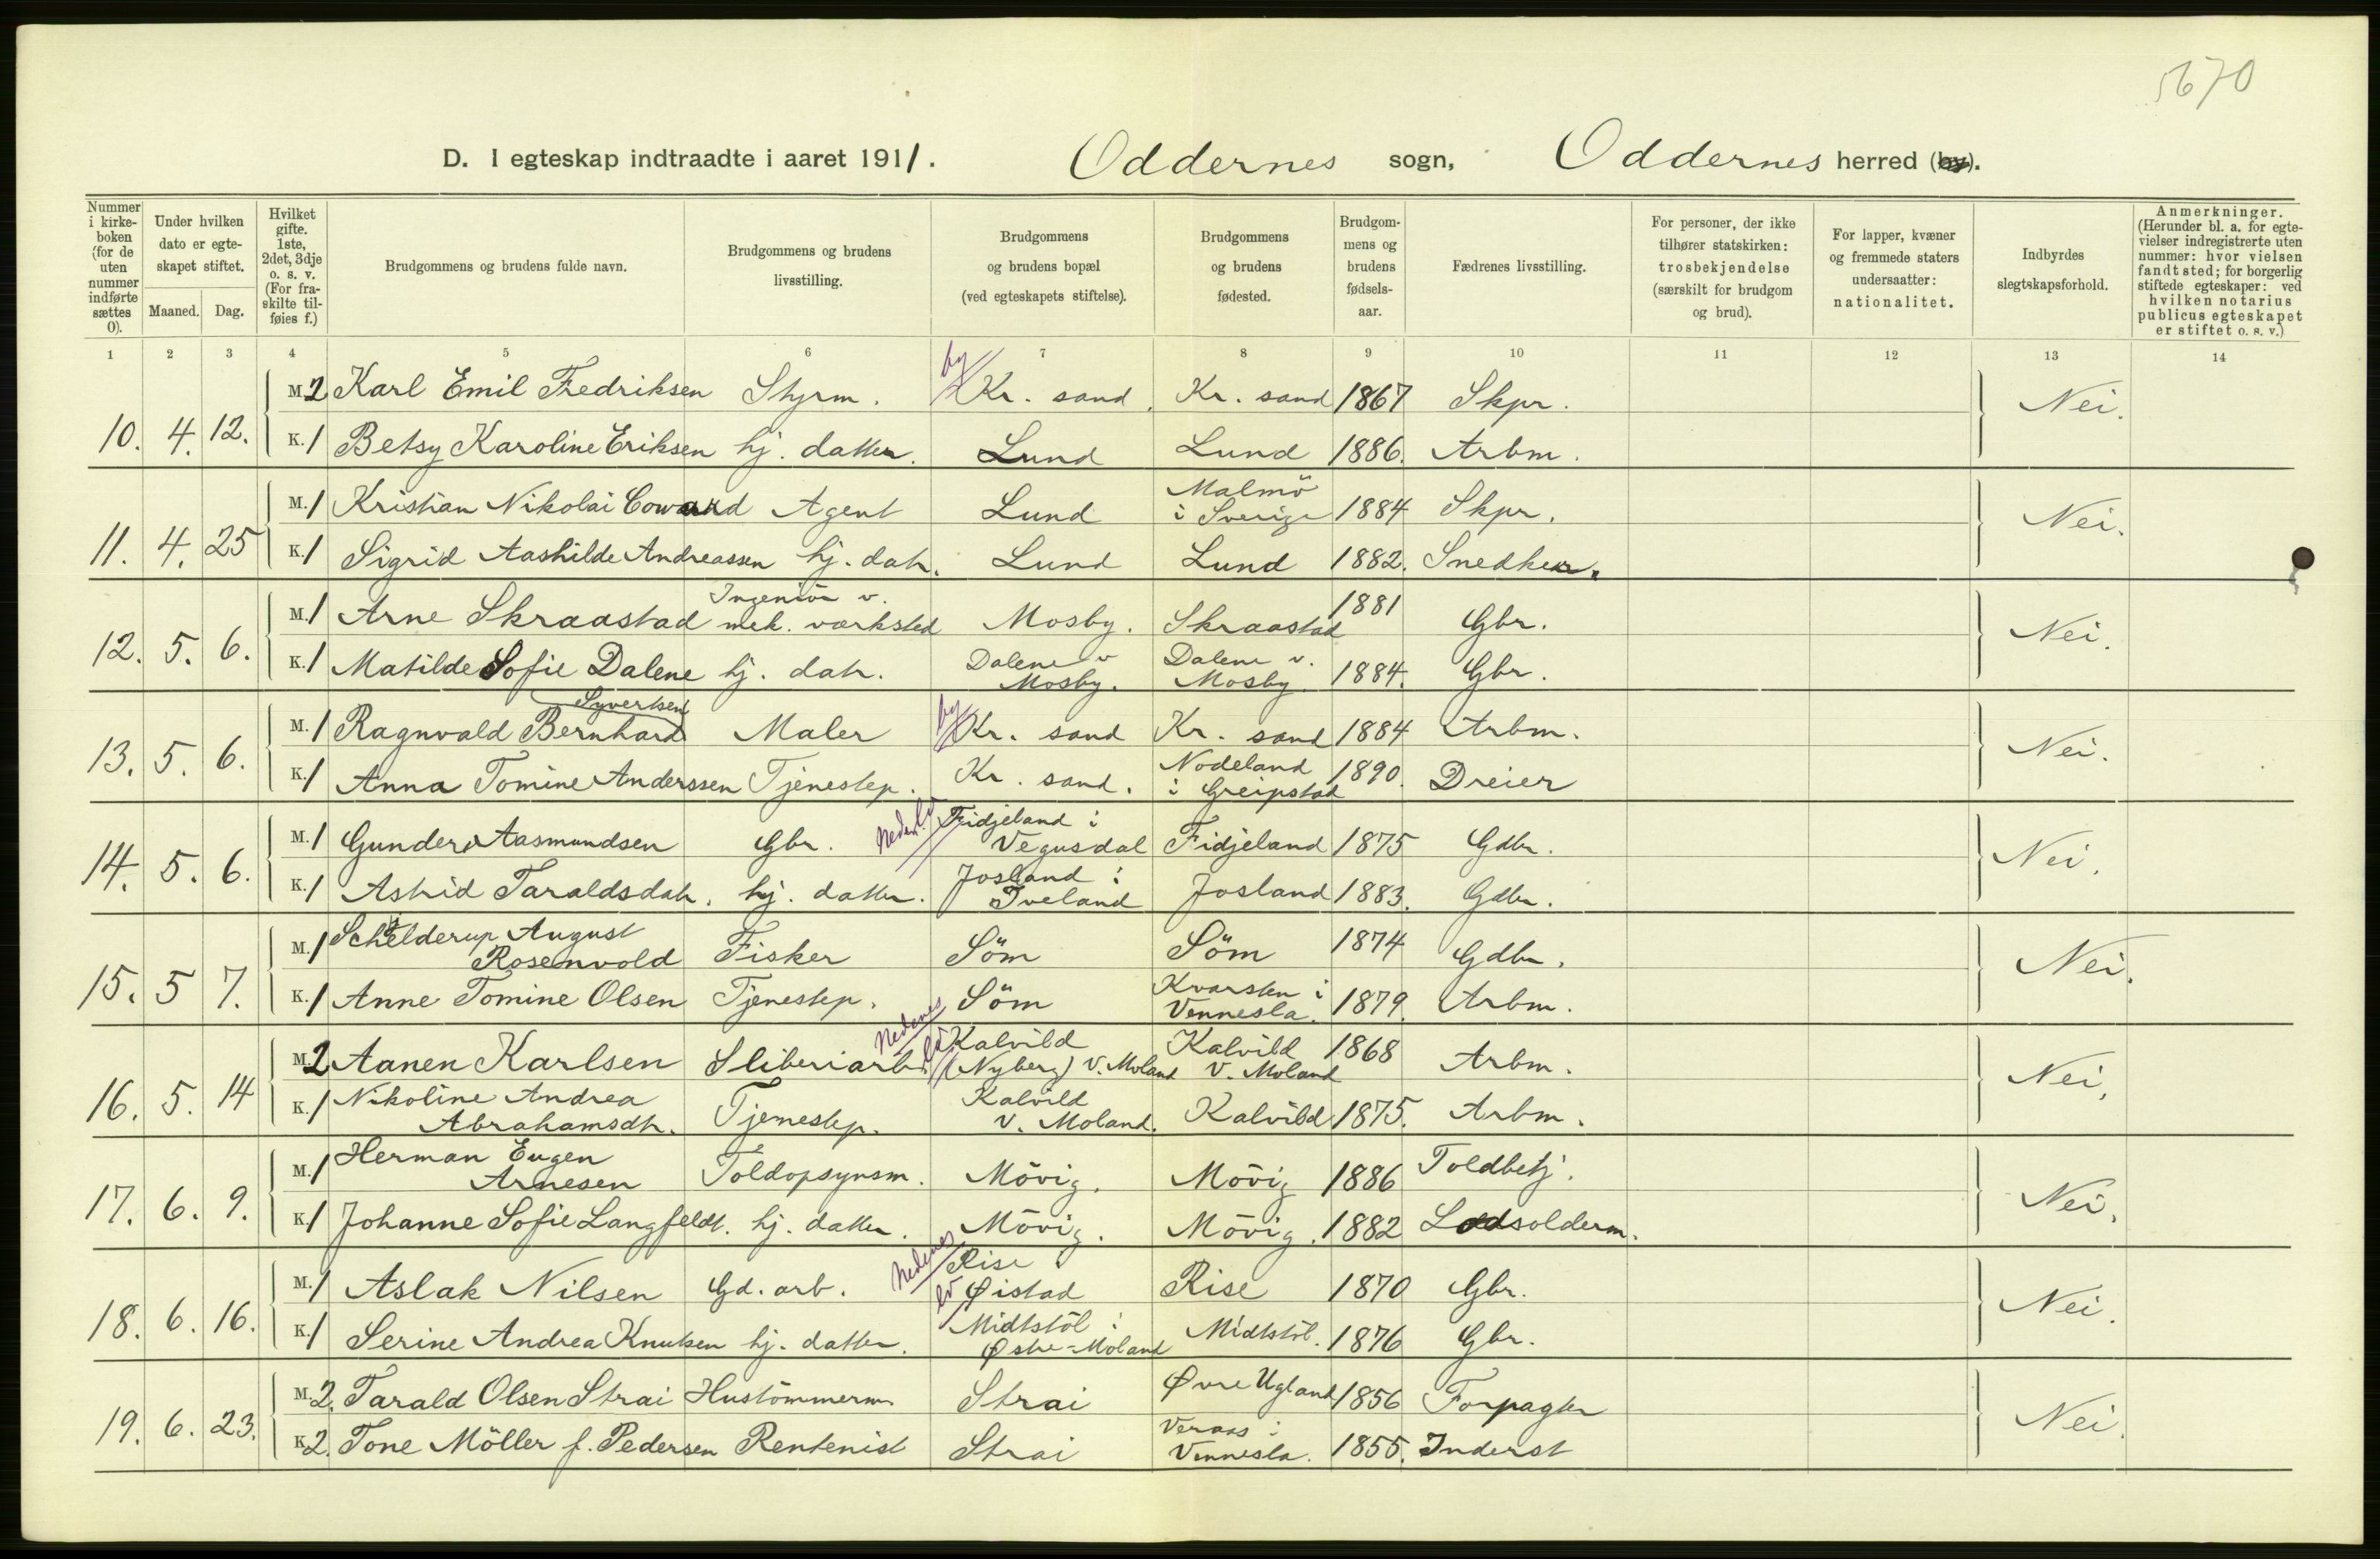 5670
D. I egteskap indtraadte i aaret 1911. Oddernes sogn, Oddernes herred (by).
Nummer i kirkeboken (for de uten nummer indførte sættes 0). Under hvilken dato er egteskapet stiftet. Maaned. Dag. Hvilket gifte. 1ste, 2det, 3dje o. s. v. (For fraskilte tilføies f.) Brudgommens og brudens fulde navn. Brudgommens og brudens livsstilling. Brudgommens og brudens bopæl (ved egteskapets stiftelse). Brudgommens og brudens fødested. Brudgommens og brudens fødselsaar. Fædrenes livsstilling. For personer, der ikke tilhører statskirken: trosbekjendelse (særskilt for brudgom og brud). For lapper, kvæner og fremmede staters undersaatter: nationalitet. Indbyrdes slegtskapsforhold. Anmerkninger. (Herunder bl. a. for egtevielser indregistrerte uten nummer: hvor vielsen fandt sted; for borgerlig stiftede egteskaper: ved hvilken notarius publicus egteskapet er stiftet o. s. v.)
1 2 3 4 5 6 7 8 9 10 11 12 13 14
10. 4. 12. M. 2 Karl Emil Fredriksen Styrm. by Kr. sand. Kr. sand 1867 Skpr. Nei.
K. 1 Betsy Karoline Eriksen hj. datter. Lund Lund 1886. Arbm.
11. 4. 25 M. 1 Kristian Nikolai Coward Agent Lund Malmö i Sverige 1884 Skpr. Nei.
K. 1 Sigrid Aashilde Andreassen hj. datr. Lund Lund 1882. Snedker.
12. 5. 6. M. 1 Arne Skraastad Ingeniör v. mek. værksted Mosby. Skraastad 1881 Gbr. Nei.
K. 1 Matilde Sofie Dalene hj. datr. Dalene v Mosby. Dalene v. Mosby 1884. Gbr.
13. 5. 6. M. 1 Ragnvald Bernhard Syvertsen Maler by Kr. sand Kr. sand 1884 Arbm. Nei.
K. 1 Anna Tomine Anderssen Tjenestep. Kr. sand. Nodeland i Greipstad 1890. Dreier
14. 5. 6. M. 1 Gunder Aasmundsen Gbr. Neden. ld Fidjeland i Vegusdal Fidjeland 1875 Gdbr. Nei.
K. 1 Astrid Taraldsdatr. hj. datter. Josland i Iveland Josland 1883. Gdbr.
15. 5 7. M. 1 Schelderup August Rosenvold Fisker Söm Söm 1874 Gdbr. Nei.
K. 1 Anne Tomine Olsen Tjenestep. Söm Kvarsten i Vennesla. 1879. Arbm.
16. 5. 14 M. 2 Aanen Karlsen Sliberiarb. Nedenes ld Kalvild (Nyberg) V. Moland Kalvild V. Moland 1868 Arbm. Nei.
K. 1 Nikoline Andrea Abrahamsdtr. Tjenestep. Kalvild V. Moland. Kalvild 1875. Arbm.
17. 6. 9. M. 1 Herman Eugen Arnesen Toldopsynsm. Mövig. Mövig 1886 Toldbetj. Nei.
K. 1 Johanne Sofie Langfeldt. hj. datter. Mövig. Mövig. 1882 Lodsolderm.
18. 6. 16. M. 1 Aslak Nilsen Gd. arb. Nedenes ld Rise i Øistad Rise 1870 Gbr. Nei.
K. 1 Serine Andrea Knutsen hj. datter. Midtstöl i Østre-Moland Midtstöl. 1876 Gbr.
19. 6. 23. M. 2. Tarald Olsen Strai Hustömmerm. Strai Øvre Ugland 1856 Forpagter Nei.
K. 2. Tone Möller f. Pedersen Rentenist Strai Veraas i Vennesla. 1855. Inderst